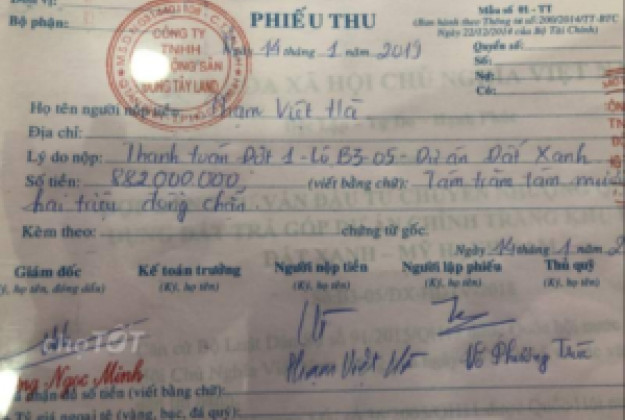 Bộ phận:
PHIẾU THU
Mẫu số 01 - TT
(Ban hành theo Thông tư số 200/2014/TT-BTC
Ngày 22/12/2014 của Bộ Tài Chính)
CÔNG TY
TNHH
ĐỘNG SẢN
HƯNG TÂY LAND
Ngày 14 tháng 1 năm 2019
Quyển số:
Số:
Nợ:
Có:
Họ tên người nộp tiền: Phạm Việt Hà
Địa chỉ:
Lý do nộp: Thanh toán Đợt 1 - Lô B3-05 - Dự án Đất Xanh
Số tiền: 882000.000, (viết bằng chữ): Tám trăm tám mươi
hai triệu đồng chẵn
Kèm theo: chứng từ gốc.
Ngày 14 tháng 1 năm 2
Giám đốc Kế toán trưởng Người nộp tiền Người lập phiếu Thủ quỹ
(Ký, họ tên, đóng dấu) (Ký, họ tên) (Ký, họ tên) (Ký, họ tên) (Ký, họ tên)
chợTỐT
Ngọc Minh
Phạm Việt Hà
Võ Phương Trúc
nhận đủ số tiền (viết bằng chữ):
Tỷ giá ngoại tệ (vàng, bạc, đá quý):